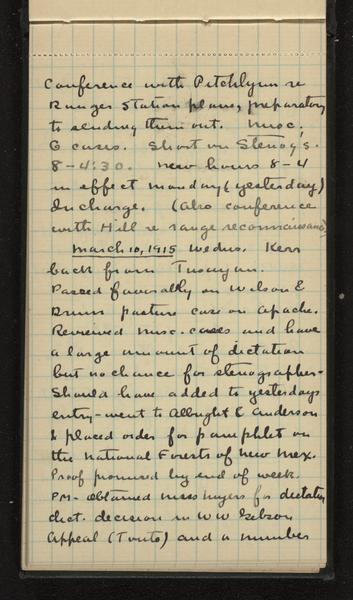 Conference with Pitchlynn re
Ranger Station plans, preparatory
to sending them out. Misc.
G cases. Short on Stenog's.
8-4:30. New hours 8-4
in effect Monday (yesterday)
In charge. (Also conference
with Hill re range reconnaissance)
March 10, 1915 Wednes. Kerr
back from Tusayan.
Passed favorably on Wilson &
Drum pasture case on Apache.
Reviewed misc. cases and have
a large amount of dictation
but no chance for stenographer-
Should have added to yesterdays
entry - went to Albright & Anderson
& placed order for pamphlet on
the National Forests of New Mex.
Proof promised by end of week.
PM - obtained Miss Myers for dictation
dict. decision in WW Gibson
Appeal (Tonto) and a number